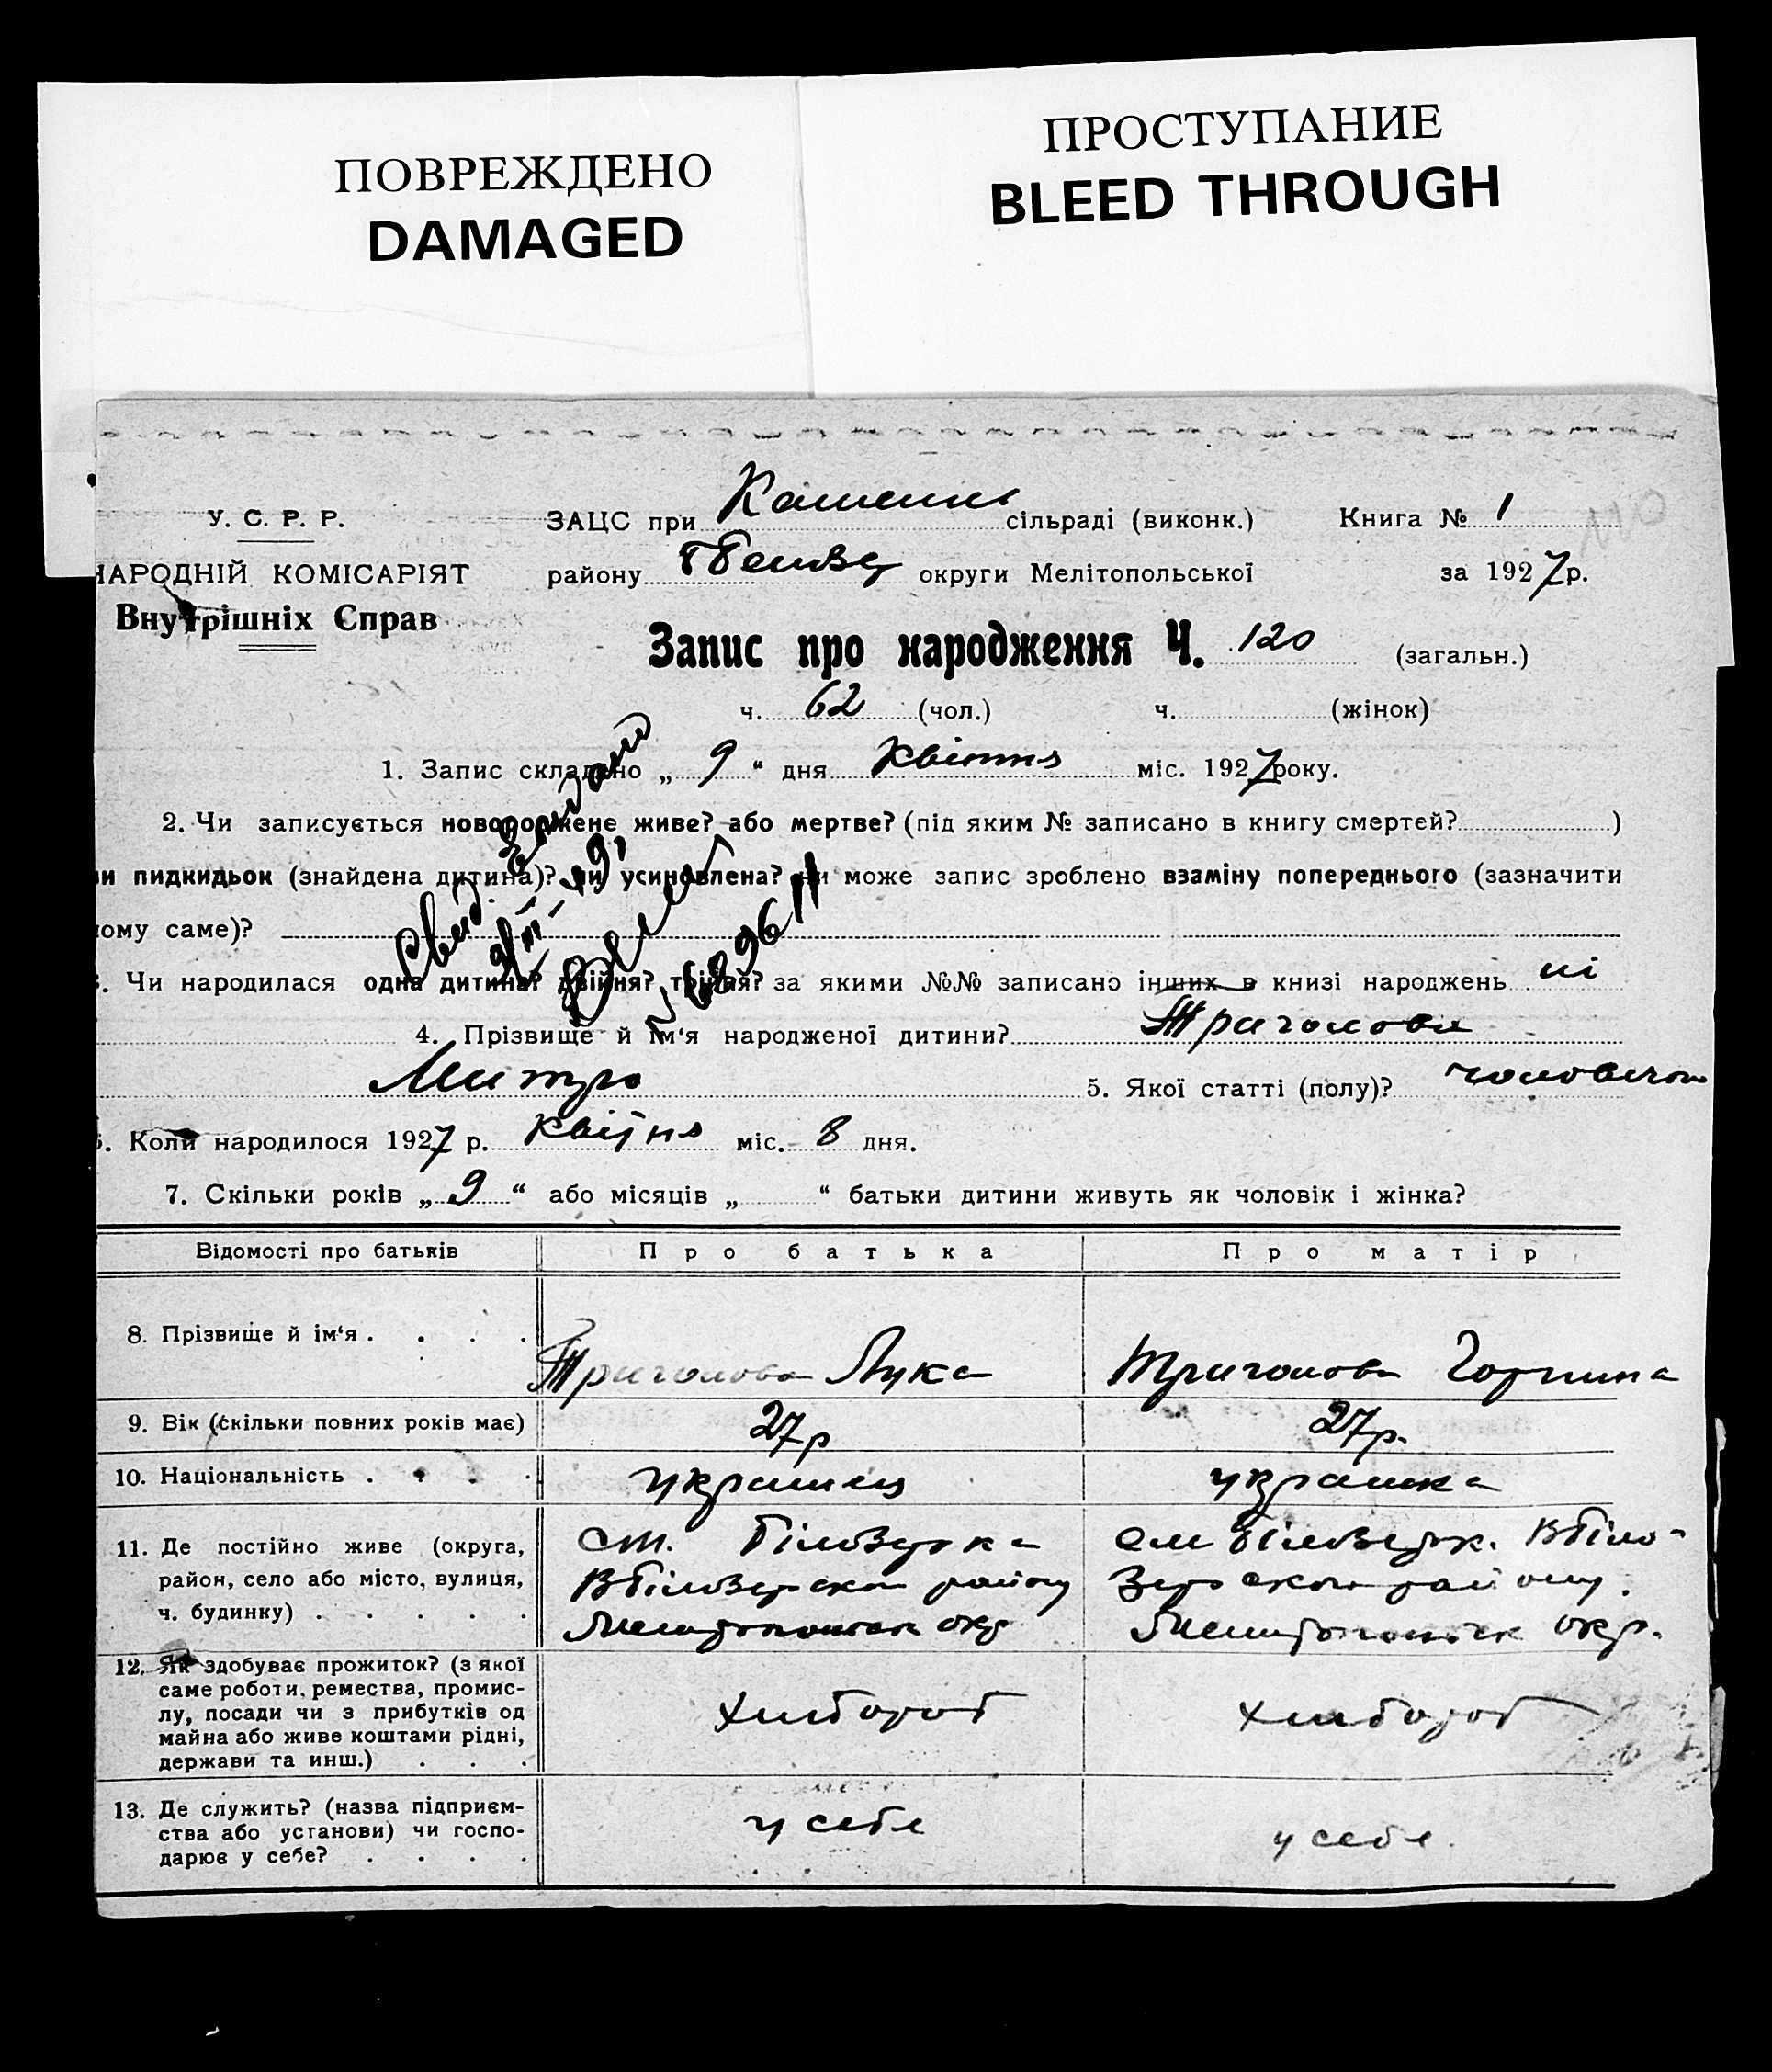 ПОВРЕЖДЕНО
DAMAGED
ПРОСТУПАНИЕ
BLEED THROUGH
У. С. Р. Р.
НАРОДНІЙ КОМІСАРІЯТ
Внутрішніх Справ
ЗАЦС при сільраді (виконк.) Книга № 1
району округи Мелітопольської за 1927 р.
Запис про народження Ч. 120 (загальн.)
ч. 62 (чол.) ч. (жінок)
1. Запис складено „ 9 “ дня Квітня міс. 1927 року.
2. Чи записується новороджене живе? або мертве? (під яким № записано в книгу смертей? )
чи пидкидьок (знайдена дитина)? чи усиновлена? чи може запис зроблено взаміну попереднього (зазначити
кому саме)?
3. Чи народилася одна дитина? двійня? трійня? за якими №№ записано інших в книзі народжень ні
4. Прізвище й ім‘я народженої дитини? Триголова
Митро 5. Якої статті (полу)?
6. Коли народилося 1927 р. Квітня міс. 8 дня.
7. Скільки років „ 9 “ або місяців „ “ батьки дитини живуть як чоловік і жінка?
Відомості про батьків Про батька Про матір
8. Прізвище й ім‘я . . . . Триголова Лука Триголова Горпина
9. Вік (скільки повних років має) 27 р 27 р.
10. Національність . . . . українець українка
11. Де постійно живе (округа,
район, село або місто, вулиця,
ч. будинку) . . . . .
см. Білозерка
ВБілозерського району
Мелітопольськ окр
см Білозерк. ВБіло-
зерського району.
Мелітопольськ окр.
12. Як здобуває прожиток? (з якої
саме роботи, ремества, промис-
лу, посади чи з прибутків од
майна або живе коштами рідні,
держави та инш.) . . .
хлібороб хлібороб
13. Де служить? (назва підприєм-
ства або установи) чи госпо-
дарює у себе? . . . .
у себе у себе.